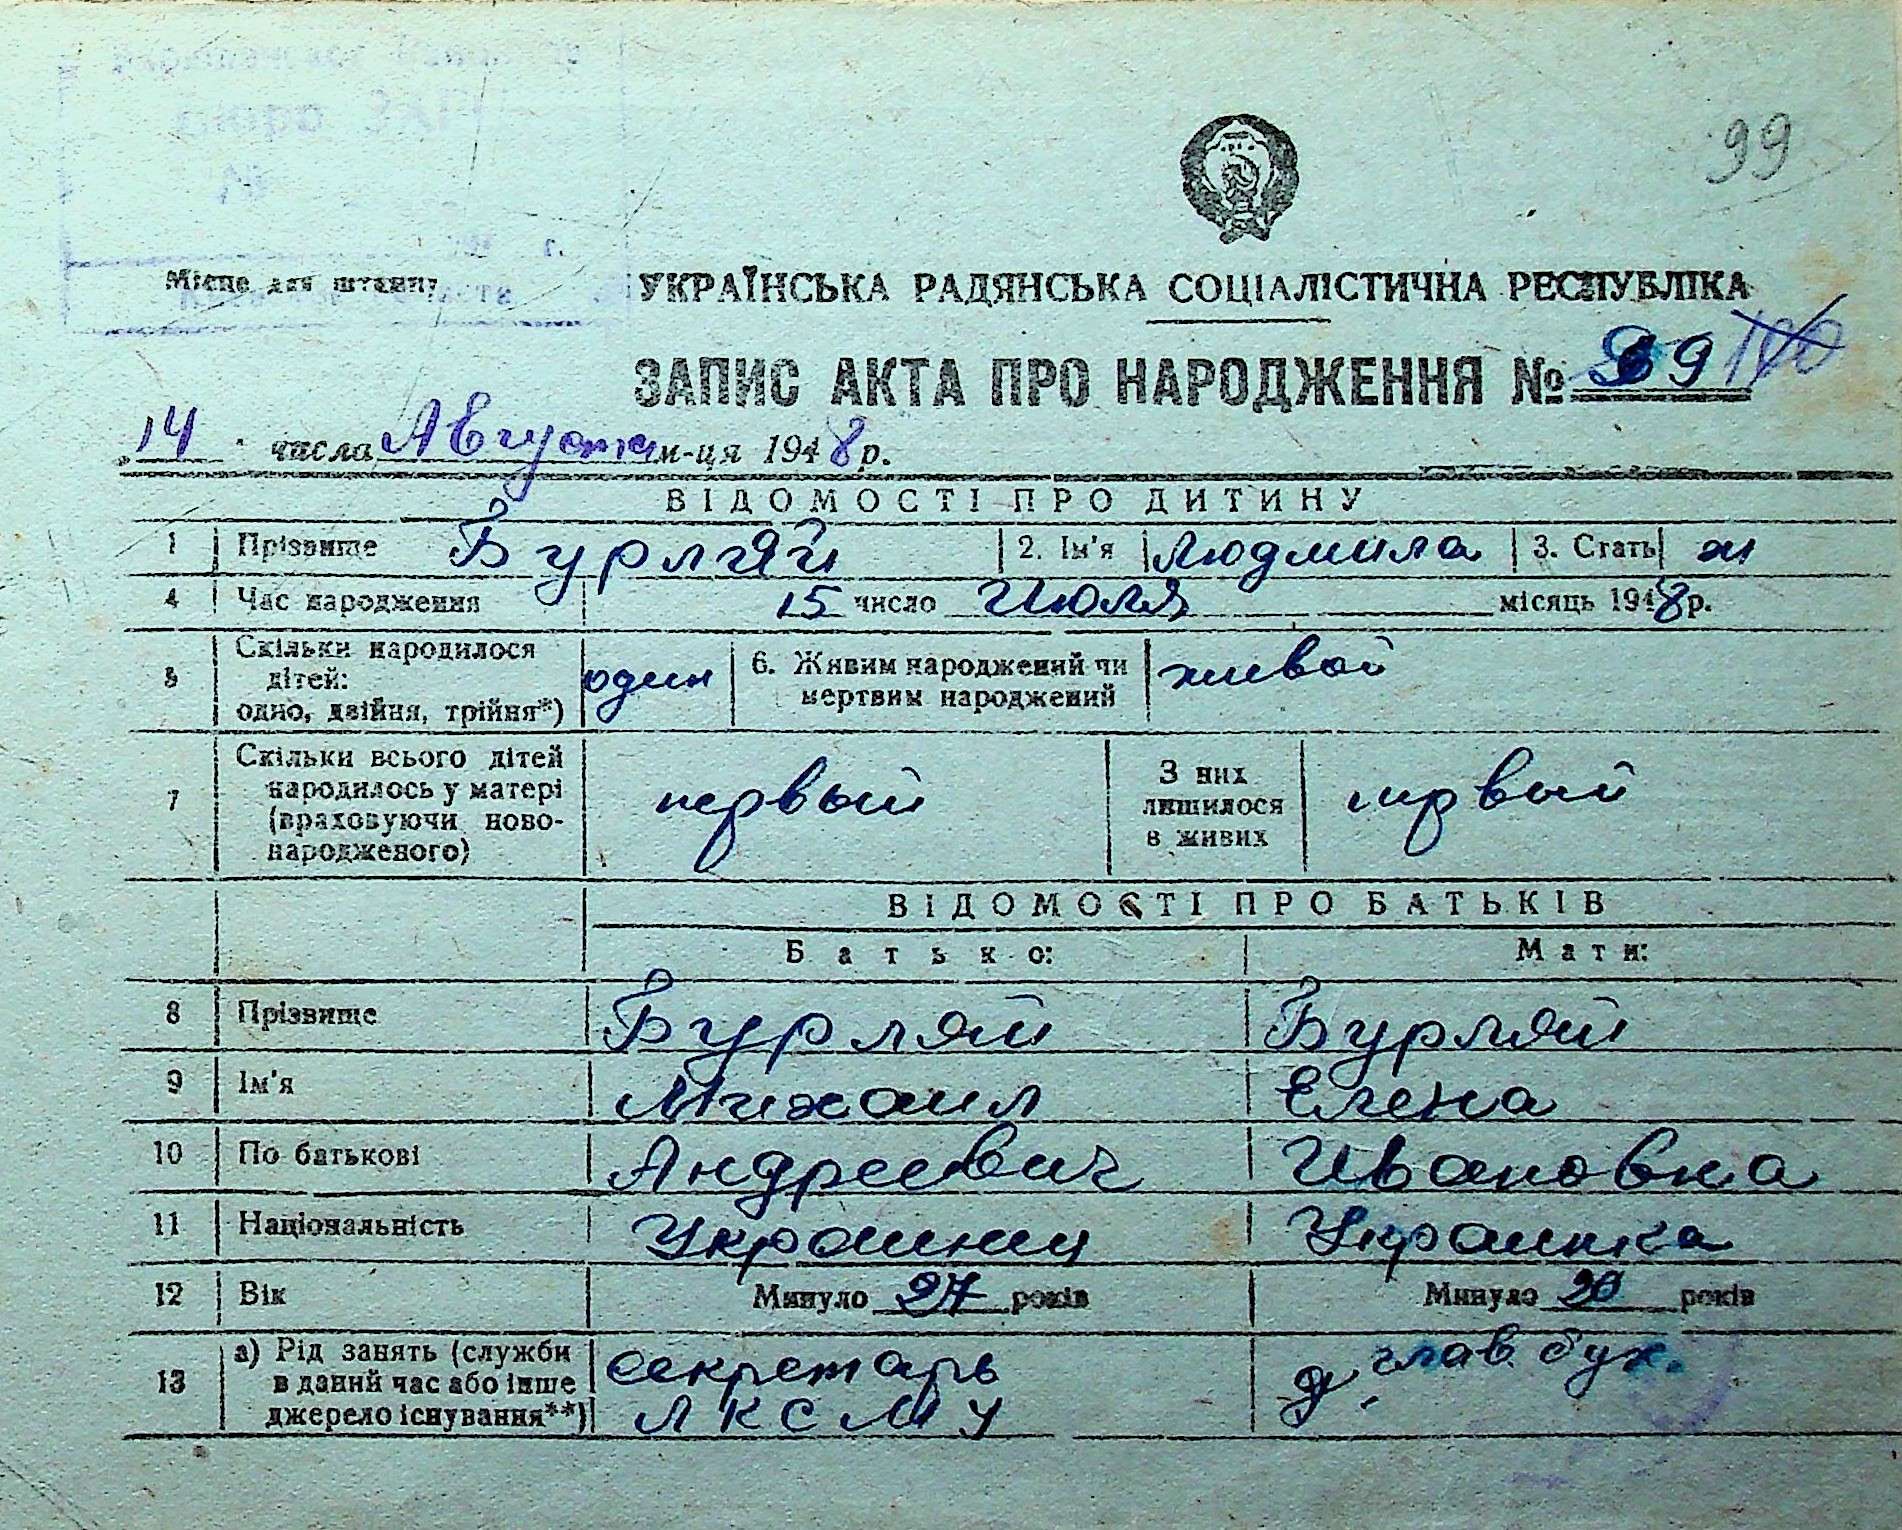 99
Місце для штампу
УКРАЇНСЬКА РАДЯНСЬКА СОЦІАЛІСТИЧНА РЕСПУБЛІКА
ЗАПИС АКТА ПРО НАРОДЖЕННЯ № 99 100
„14 " числа Августа м-ця 1948 р.
ВІДОМОСТІ ПРО ДИТИНУ
1 Прізвище Бурляй 2. Ім'я Людмила 3. Стать ж
4 Час народження 15 число Июля місяць 1948 р.
5 Скільки народилося дітей: одно, двійня, трійня*) один 6. Живим народжений чи мертвим народжений живой
7 Скільки всього дітей народилось у матері (враховуючи ново-народженого) первый З них лишилося в живих первый
ВІДОМОСТІ ПРО БАТЬКІВ
Батько: Мати:
8 Прізвище Бурляй Бурляй
9 Ім'я Михаил Елена
10 По батькові Андреевич Ивановна
11 Національність Украинец Украинка
12 Вік Минуло 27 років Минуло 20 років
13 а) Рід занять (служби в даний час або інше джерело існування**) секретарь ЛКСМУ глав. бух.